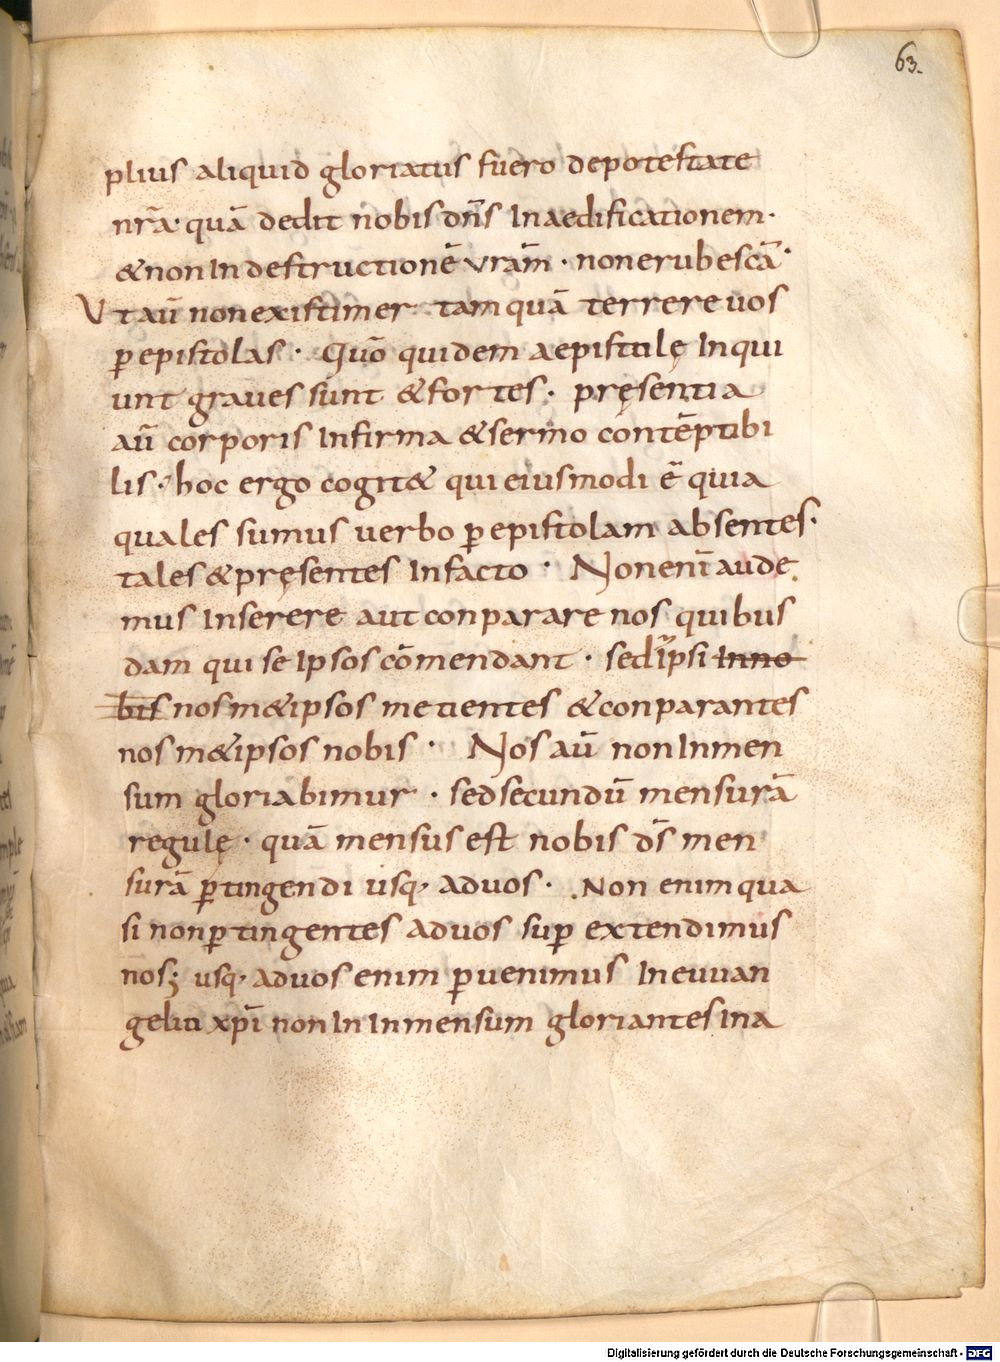 63.
plius aliquid gloriatus fuero depotestate
nr̄a· quā dedit nobis dn̄s Inaedificationem·
&nonIndestructionē vrām · nonerubescā·
Vt aū nonexistimer tamquā terrere uos
p̱epistolas · Quō quidem aepistulę Inqui
unt graues sunt &fortes · pręsentia
aū corporis Infirma &sermo contēptibi
lis · hoc ergo cogit& qui eiusmodi ē quia
quales sumus uerbo p̱epistolam absentes·
tales &pręsentes Infacto · Nonenī aude
mus Inserere aut conparare nos quibus
dam qui se Ipsos cōmendant · sed ipsi Inno
bis nosm&ipsos metientes &conparantes
nosm&ipsos nobis · Nos aū nonInmen
sum gloriabimur · sedsecundū mensurā
regulę · quā mensus est nobis ds̄ men
surā p̱tingendi usq· aduos · Non enim qua
si nonp̱tingentes aduos sup̱ extendimus
nos; usq· aduos enim p̱uenimus Ineuuan
gelii xp̄i nonIn Inmensum gloriantes Ina
Digitalisierung gefördert durch die Deutsche Forschungsgemeinschaft - DFG